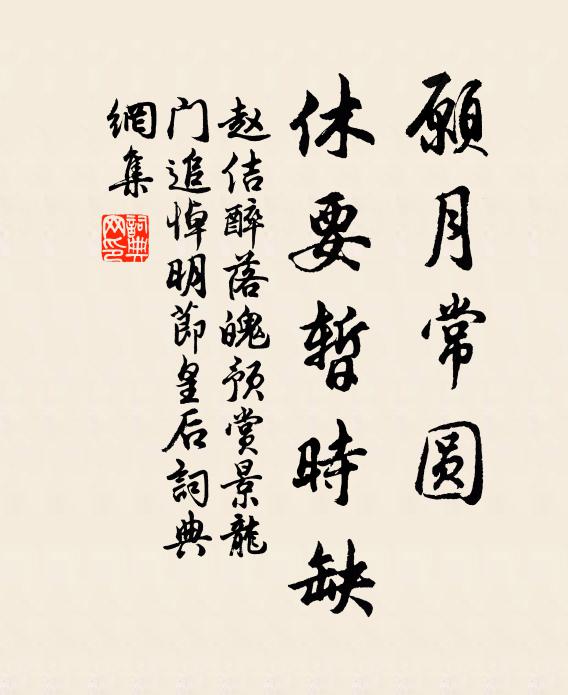 願月常圆
休要暫時缺
赵佶醉落魄预赏景龍
门追悼明節皇后詞典
網集
詞典網印